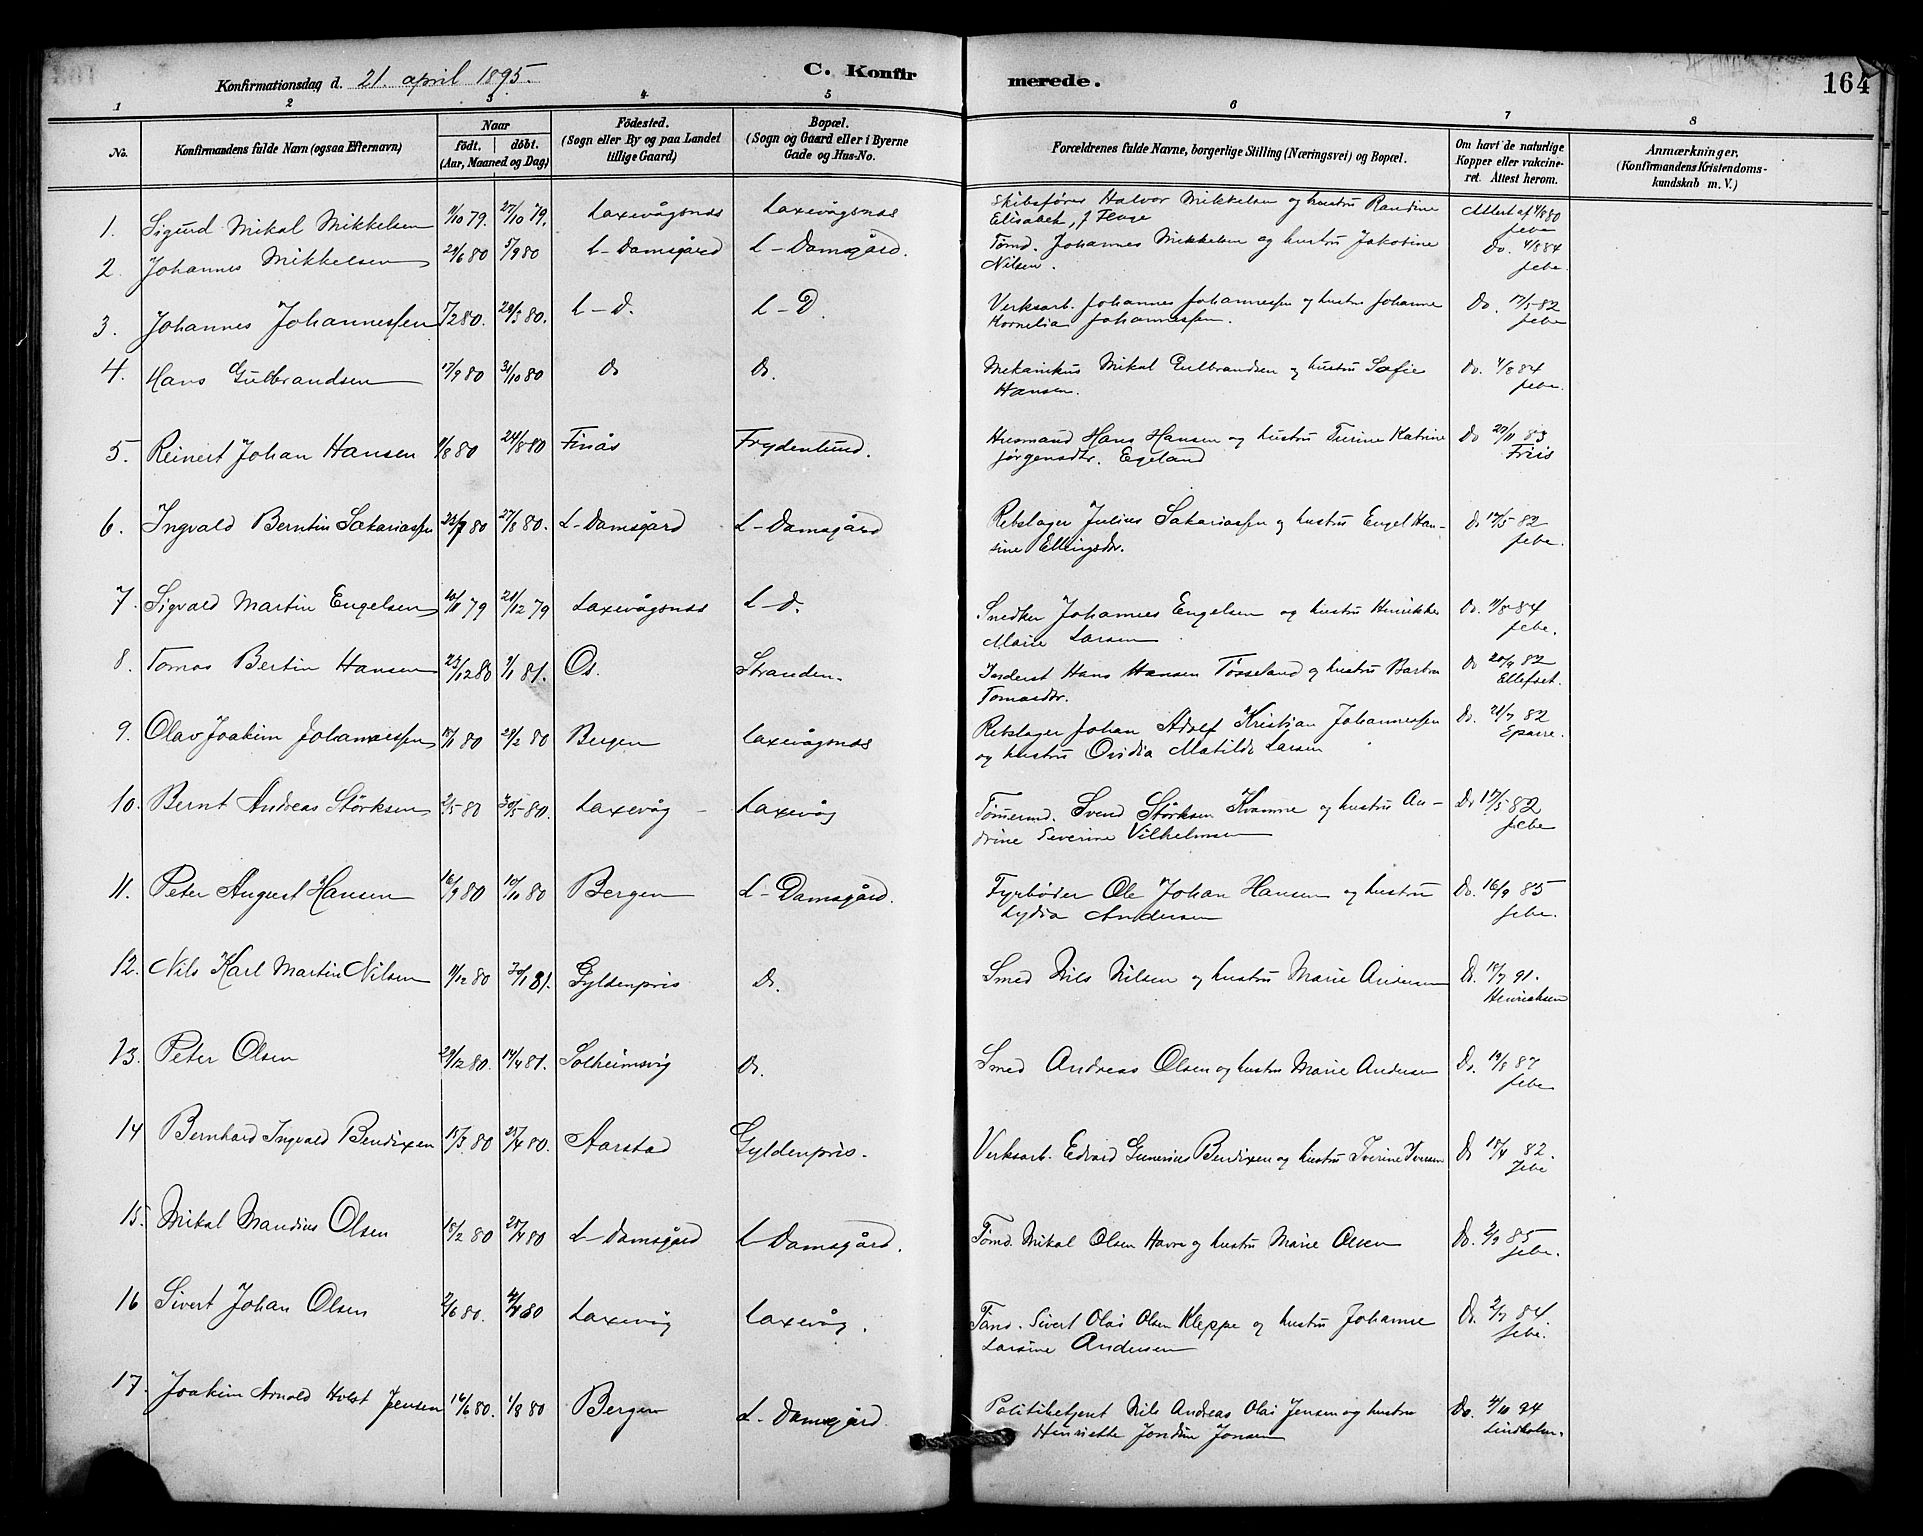 Konfirmationsdag d. 21. april 1895.
C. Konfirmerede.
164
1 2 3 4 5 6 7 8
No.
Konfirmandens fulde Navn (ogsaa Efternavn)
Naar
födt. döbt.
(Aar, Maaned og Dag)
Födested.
(Sogn eller By og paa Landet
tillige Gaard)
Bopæl.
(Sogn og Gaard eller i Byerne
Gade og Hus-No.
Forældrenes fulde Navne, borgerlige Stilling (Næringsvei) og Bopæl.
Om havt de naturlige
Kopper eller vakcine-
ret. Attest herom.
Anmærkninger.
(Konfirmandens Kristendoms-
kundskab m. V.)
1. Sigurd Mikal Mikkelsen 11/10 79. 27/10 79. Laxevågsnæs Laxevågsnæs Skibsfører Halvor Mikkelsen og hustru Randine Attest af 4/8 80
Elisabet, f Fluge Jebe
2. Johannes Mikkelsen 29/6 80 5/9 80 L-Damsgård L-Damsgård. Tømd. Johannes Mikkelsen og hustru Jakobine Do. 4/8 84
Nilsen. Jebe.
3. Johannes Johannessen 7/2 80. 29/3 80. L-D. L-D. Verksarb. Johannes Johannessen og hustru Johanne Do. 17/5 82
Kornelia Johannessen. Jebe
4. Hans Gulbrandsen 17/9 80 31/10 80 Do Do. Mekanikus Mikal Gulbrandsen og hustru Sofie Do. 4/8 84
Hansen. Jebe.
5. Reinert Johan Hansen 11/8 80 24/8 80 Finås Frydenlund. Husmand Hans Hansen og hustru Turine Katrine Do 29/11 83
Jørgensdtr. Egeland Friis
6. Ingvald Berntin Sakariassen 23/7 80 27/8 80. L-Damsgård L-Damsgård Rebslager Julius Sakariassen og hustru Engel Han- Do 17/5 82
sine Ellingsdr. Jebe.
7. Sigvald Martin Engelsen 10/11 79 28/12 79 Laxevågsnæs L-D. Snedker Johannes Engelsen og hustru Henrikke Do. 11/8 84
Marie Larsen Jebe.
8. Tomas Bertin Hansen 23/12 80 9/1 81. Os. Stranden. Inderst Hans Hansen Tøsseland og hustru Barbra Do 20/9 82
Tomasdtr. Ellefset.
9. Olav Joakim Johannessen 18/1 80 29/2 80 Bergen Laxevågsnæs Rebslager Johan Adolf Kristian Johannessen Do. 21/7 82
og hustru Ovidia Matilde Larsen Sparre.
10. Bernt Andreas Størksen 2/5 80 30/5 80. Laxevåg Laxevåg Tømmermd. Svend Størksen Kvamme og hustru An- Do 17/5 82
drine Severine Vilhelmsen Jebe
11. Peter August Hansen 16/9 80 10/10 80 Bergen L-Damsgård. Fyrbøder Ole Johan Hansen og hustru Do. 16/9 85
Lydia Andersen Jebe.
12. Nils Karl Martin Nilsen 11/12 80 30/1 81. Gyldenpris Do. Smed Nils Nilsen og hustru Marie Andersen Do. 18/7 91.
Henrichsen
13. Peter Olsen 29/12 80. 14/4 81. Solheimsvig Do. Smed Andreas Olsen og hustru Marie Andersen Do. 19/8 87
Jebe
14 Bernhard Ingvald Bendixen 15/3 80 25/4 80. Aarstad Gyldenpris. Verksarb. Edvard Gunerius Bendixen og hustru Iverine Iversen Do 18/4 82.
Jebe
15. Mikal Mandius Olsen 18/2 80 25/4 80 L-Damsgård L-Damsgård. Tømd. Mikal Olsen Havre og hustru Marie Olsen Do. 2/9 85
Jebe.
16 Sivert Johan Olsen 2/6 80. 80 Laxevåg Laxevåg. Sivert Olai Olsen Kleppe og hustru Johanne Do. 2/7 84
Larsine Andersen Jebe.
17. Joakim Arnold Holst Jensen 14/6 80. 1/8 80 Bergen L-Damsgård Politibetjent Nils Andreas Olai Jensen og hustru Do. 4/10 94
Henriette Jensen Lindholm.